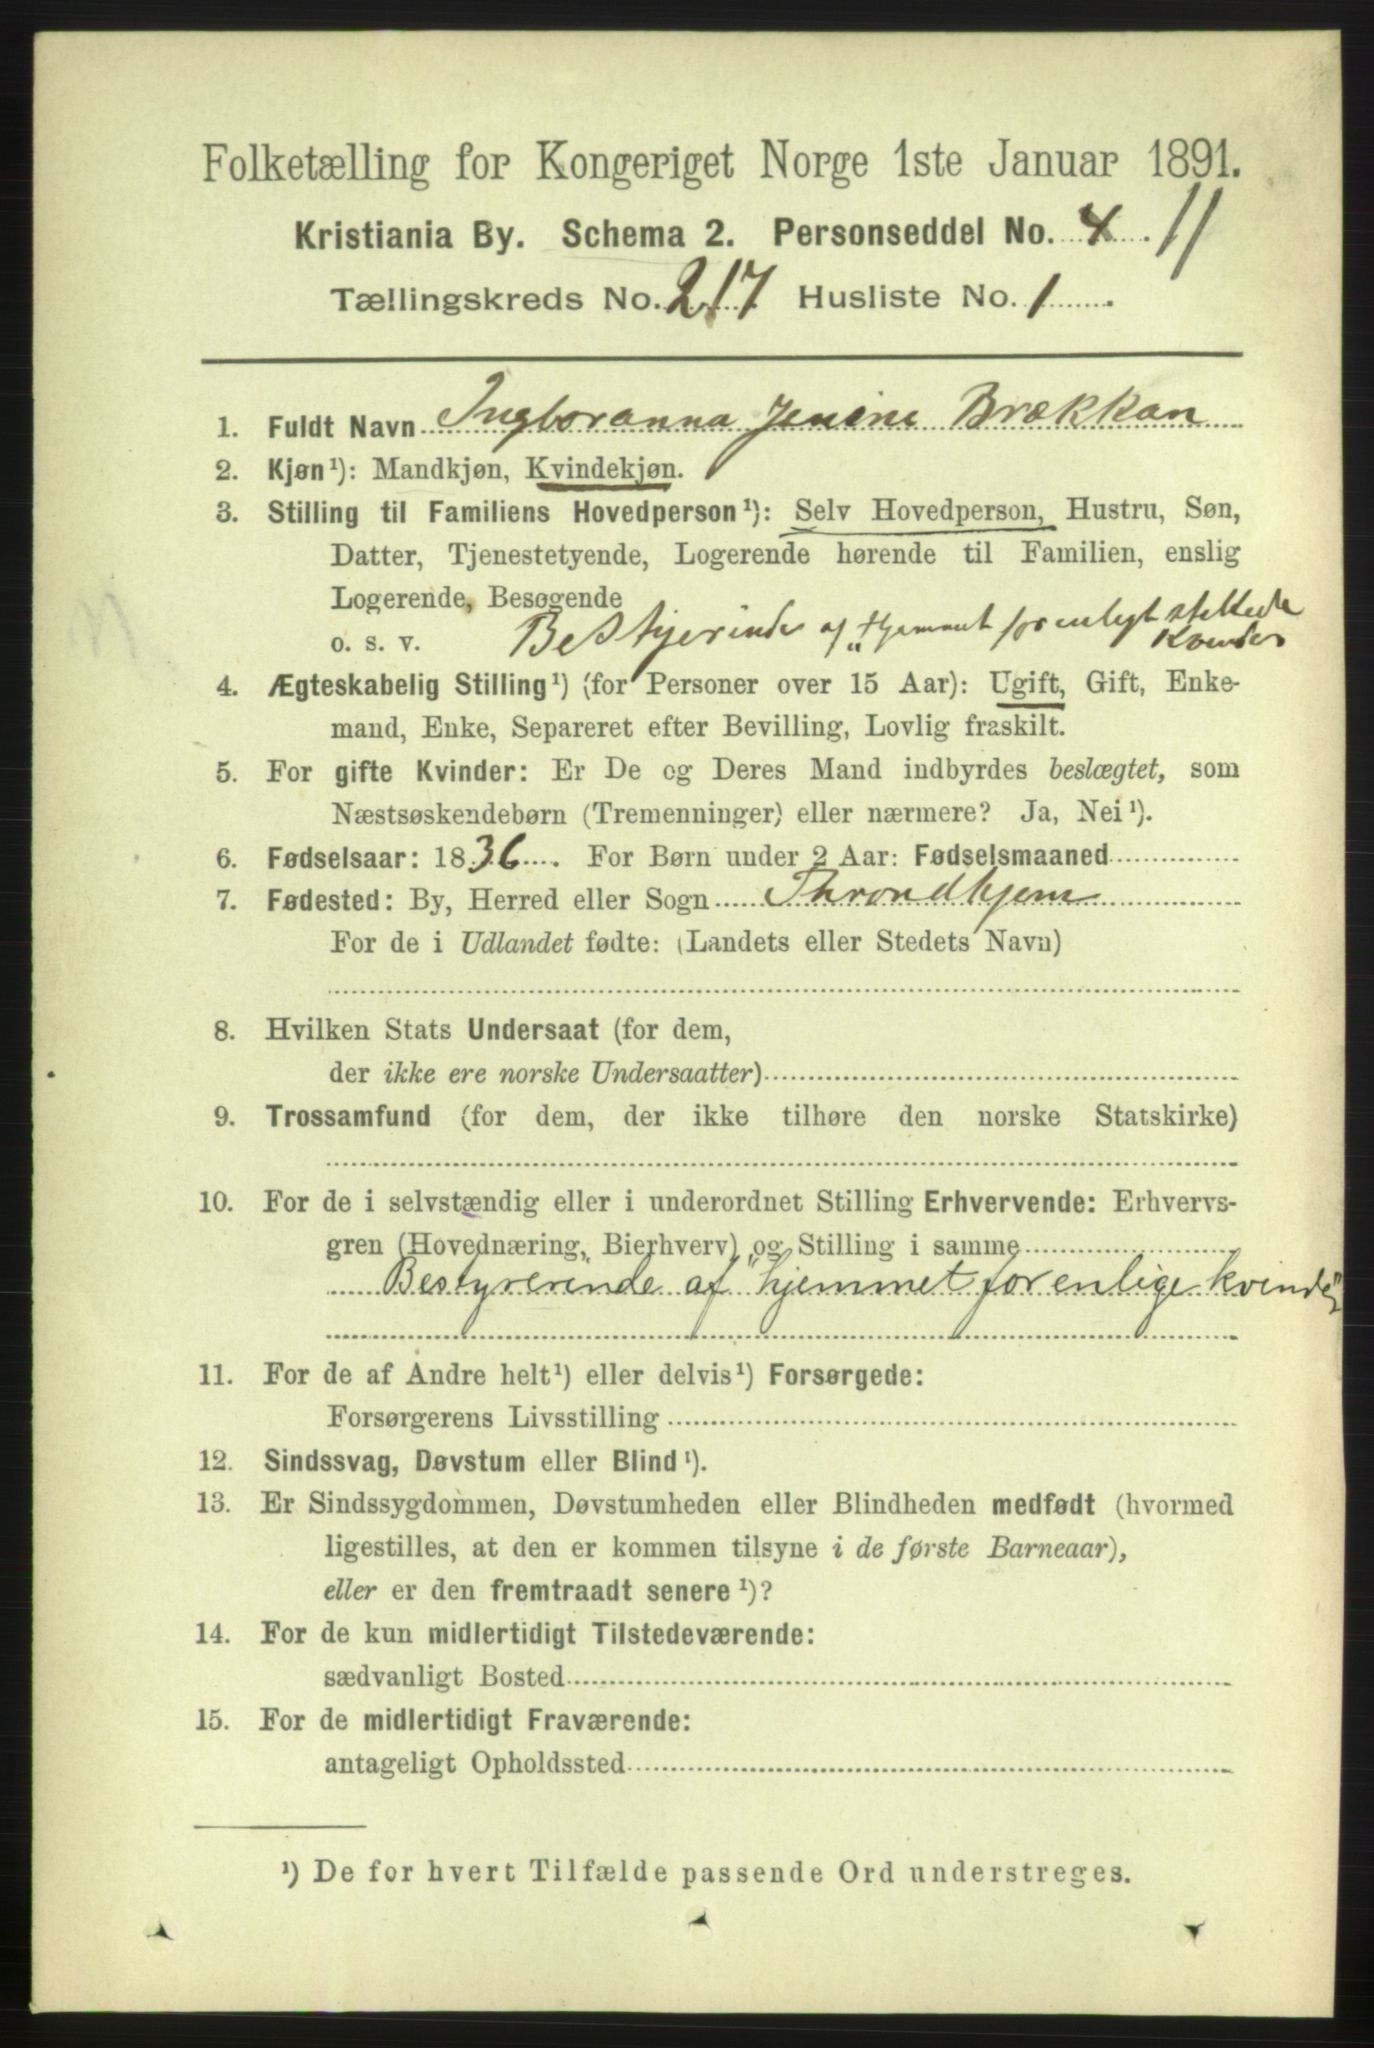 Folketælling for Kongeriget Norge 1ste Januar 1891.
Kristiania By. Schema 2. Personseddel No. 4 11
Tællingskreds No. 217 Husliste No. 1
1. Fuldt Navn Ingboranna Jenine Brækkan
2. Kjøn ¹): Mandkjøn, Kvindekjøn.
3. Stilling til Familiens Hovedperson ¹): Selv Hovedperson, Hustru, Søn,
Datter, Tjenestetyende, Logerende hørende til Familien, enslig
Logerende, Besøgende
o. s. v. Bestyerinde af "Hjemmet for enligt stillede
Kvinder
4. Ægteskabelig Stilling ¹) (for Personer over 15 Aar): Ugift, Gift, Enke-
mand, Enke, Separeret efter Bevilling, Lovlig fraskilt.
5. For gifte Kvinder: Er De og Deres Mand indbyrdes beslægtet, som
Næstsøskendebørn (Tremenninger) eller nærmere? Ja, Nei ¹).
6. Fødselsaar: 1836. For Børn under 2 Aar: Fødselsmaaned
7. Fødested: By, Herred eller Sogn Throndhjem
For de i Udlandet fødte: (Landets eller Stedets Navn)
8. Hvilken Stats Undersaat (for dem,
der ikke ere norske Undersaatter)
9. Trossamfund (for dem, der ikke tilhøre den norske Statskirke)
10. For de i selvstændig eller i underordnet Stilling Erhvervende: Erhvervs-
gren (Hovednæring, Bierhverv) og Stilling i samme
Bestyrerinde af "hjemmet for enlige kvinder"
11. For de af Andre helt ¹) eller delvis ¹) Forsørgede:
Forsørgerens Livsstilling
12. Sindssvag, Døvstum eller Blind ¹).
13. Er Sindssygdommen, Døvstumheden eller Blindheden medfødt (hvormed
ligestilles, at den er kommen tilsyne i de første Barneaar),
eller er den fremtraadt senere ¹)?
14. For de kun midlertidigt Tilstedeværende:
sædvanligt Bosted
15. For de midlertidigt Fraværende:
antageligt Opholdssted
¹) De for hvert Tilfælde passende Ord understreges.